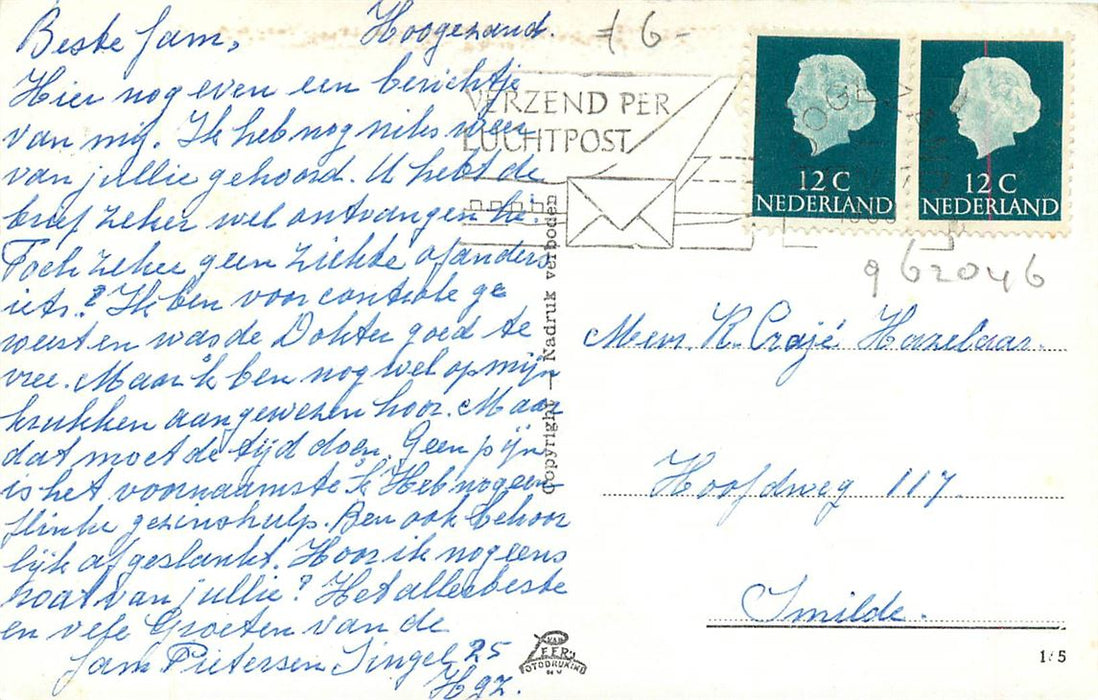 Beste fam, Hoogezand.
Hier nog even een berichtje
van mij. Ik heb nog niks weer
van jullie gehoord. U hebt de
brief zeker wel ontvangen hé.
Toch zeker geen ziekte of anders
iets.? Ik ben voor controle ge
weest en was de Dokter goed te
vree. Maar ik ben nog wel op mijn
krukken aangewezen hoor. Maar
dat moet de tijd doen. Geen pijn
is het voornaamste 'k Heb nog een
flinke gezinshulp. Ben ook behoor
lijk afgeslankt. Hoor ik nog eens
wat van jullie? Het allerbeste
en vele Groeten van de
fam Pietersen Singel 25
Hgz.
£ 6 -
VERZEND PER
LUCHTPOST
12 C
NEDERLAND
12 C
NEDERLAND
962046
Copyright — Nadruk verboden
K. Crajé Hazelaar.
Hoofdweg 117.
Smilde.
VAN
LEER'S
FOTODRUKIND
1 5